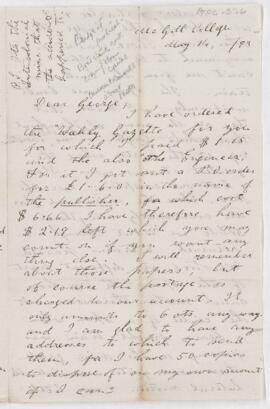 McGill College
May 14, /83
P.S. Was the
intercolonial
mine that
the accident
happened to.
Dear George,
I have ordered
the Weekly Gazette for you
for which I paid $1.15
and the also the Engineer;
for it I put sent a P.O. order
for £1-6-0 in the name of
the publisher, for which cost
$6.66 I have therefore have
$2.19 left which you may
count on if you want any
thing else. I will remember
about those papers; but
of course the postage is
charged to our account. It
only amounts to 6 cts any way
and I am glad to have any
addresses to which to send
them, for I have 50 copies
to dispose of on my own account
if I can?